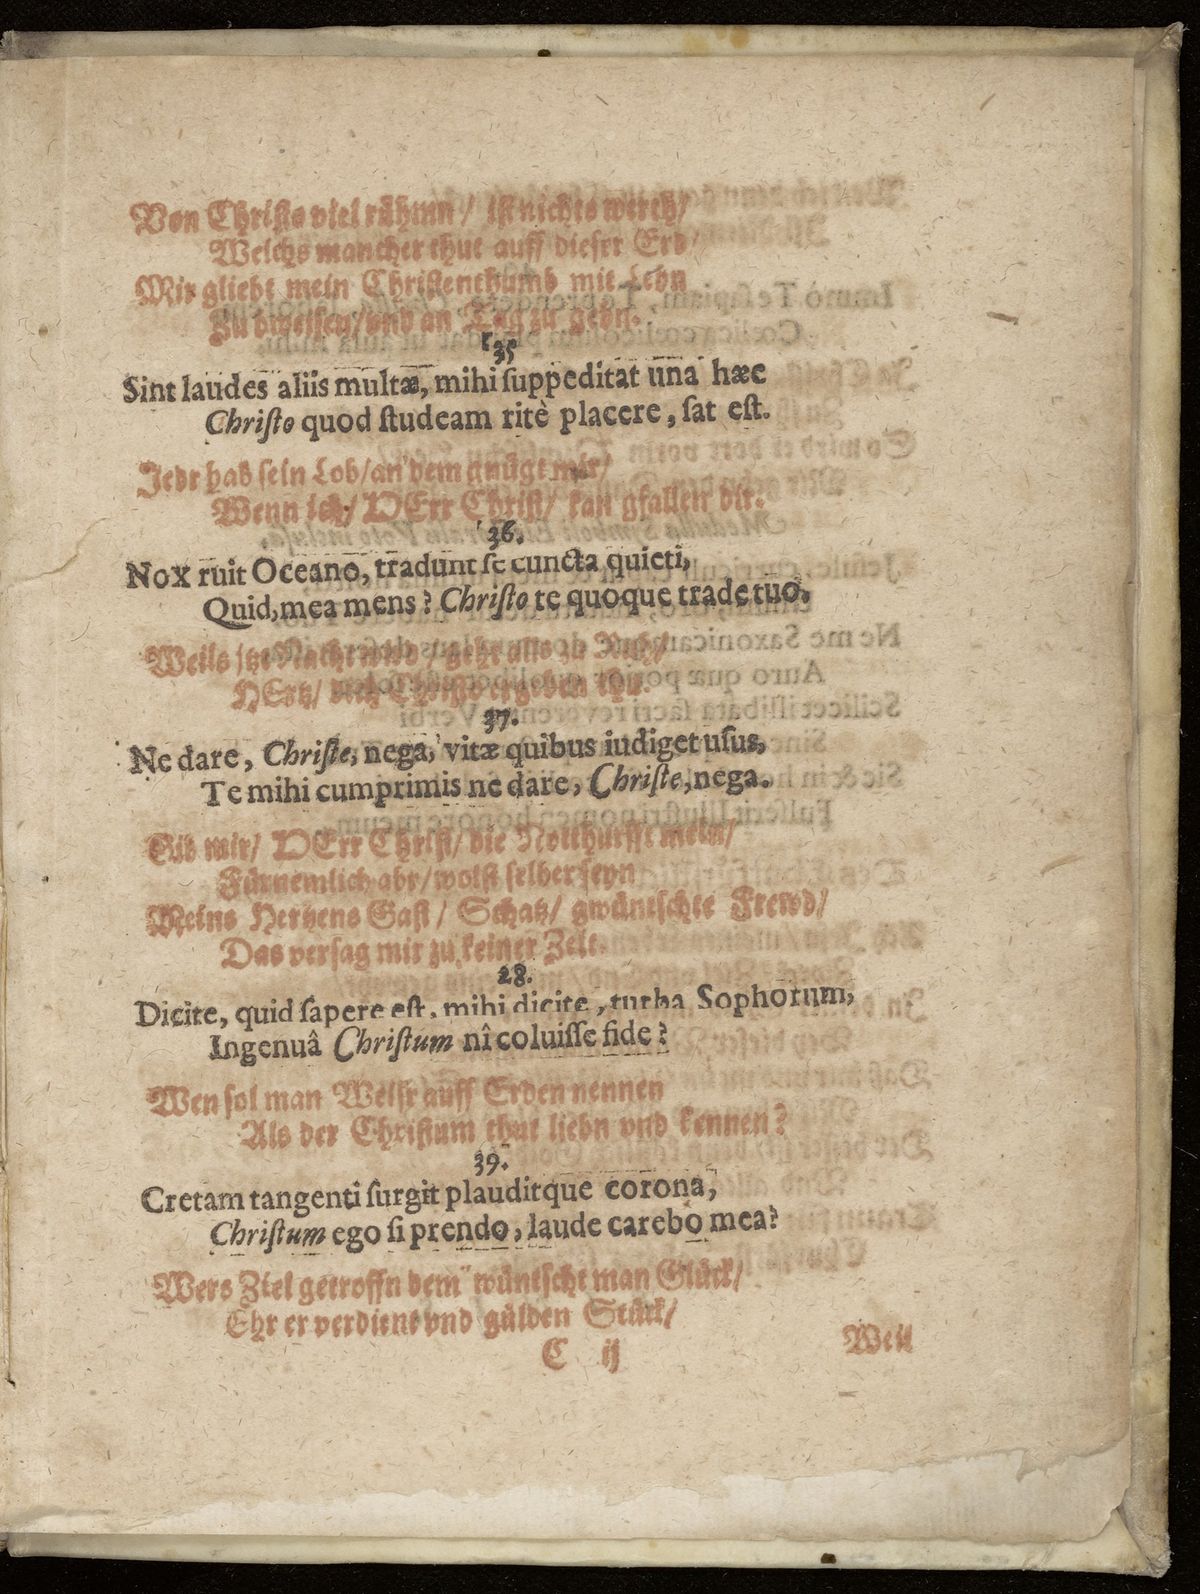 Von Christo viel rühmn / ist nichts werth /
Welchs mancher thut auff dieser Erd /
Mir gliebt mein Christenthumb mit Lebn
Zu bweisen / vnd an Tag zu gebn.
35
Sint laudes aliis multæ, mihi ſuppeditat una hæc
Chriſto quod ſtudeam ritè placere, ſat eſt.
Jedr hab sein Lob / an dem gnügt mir /
Wenn ich / O HErr Christ / kan gfallen dir.
36.
Nox ruit Oceano, tradunt ſe cuncta quieti,
Quid, mea mens? Chriſto te quoque trade tuo.
Weils jtzt Nacht wird / geht alls zu Ruh /
HErtz / dich Christo ergeben thu.
37.
Ne dare, Chriſte, nega, vitæ quibus iudiget uſus,
Te mihi cumprimis ne dare, Chriſte, nega.
Gib mir / O HErr Christ / die Notthurfft mein /
Fürnemlich abr / wolst selber seyn
Meins Hertzens Gast / Schatz / gwüntschte Frewd /
Das versag mir zu keiner Zeit.
28.
Dicite, quid ſapere eſt, mihi dicite, turba Sophorum,
Ingenuâ Chriſtum nî coluiſſe fide?
Wen sol man Weisr auff Erden nennen
Als der Christum thut liebn vnd kennen?
39.
Cretam tangenti ſurgit plauditque corona,
Chriſtum ego ſi prendo, laude carebo mea?
Wers Ziel getroffn dem wüntscht man Glück /
Ehr er verdient vnd gülden Stück /
C ij Weil